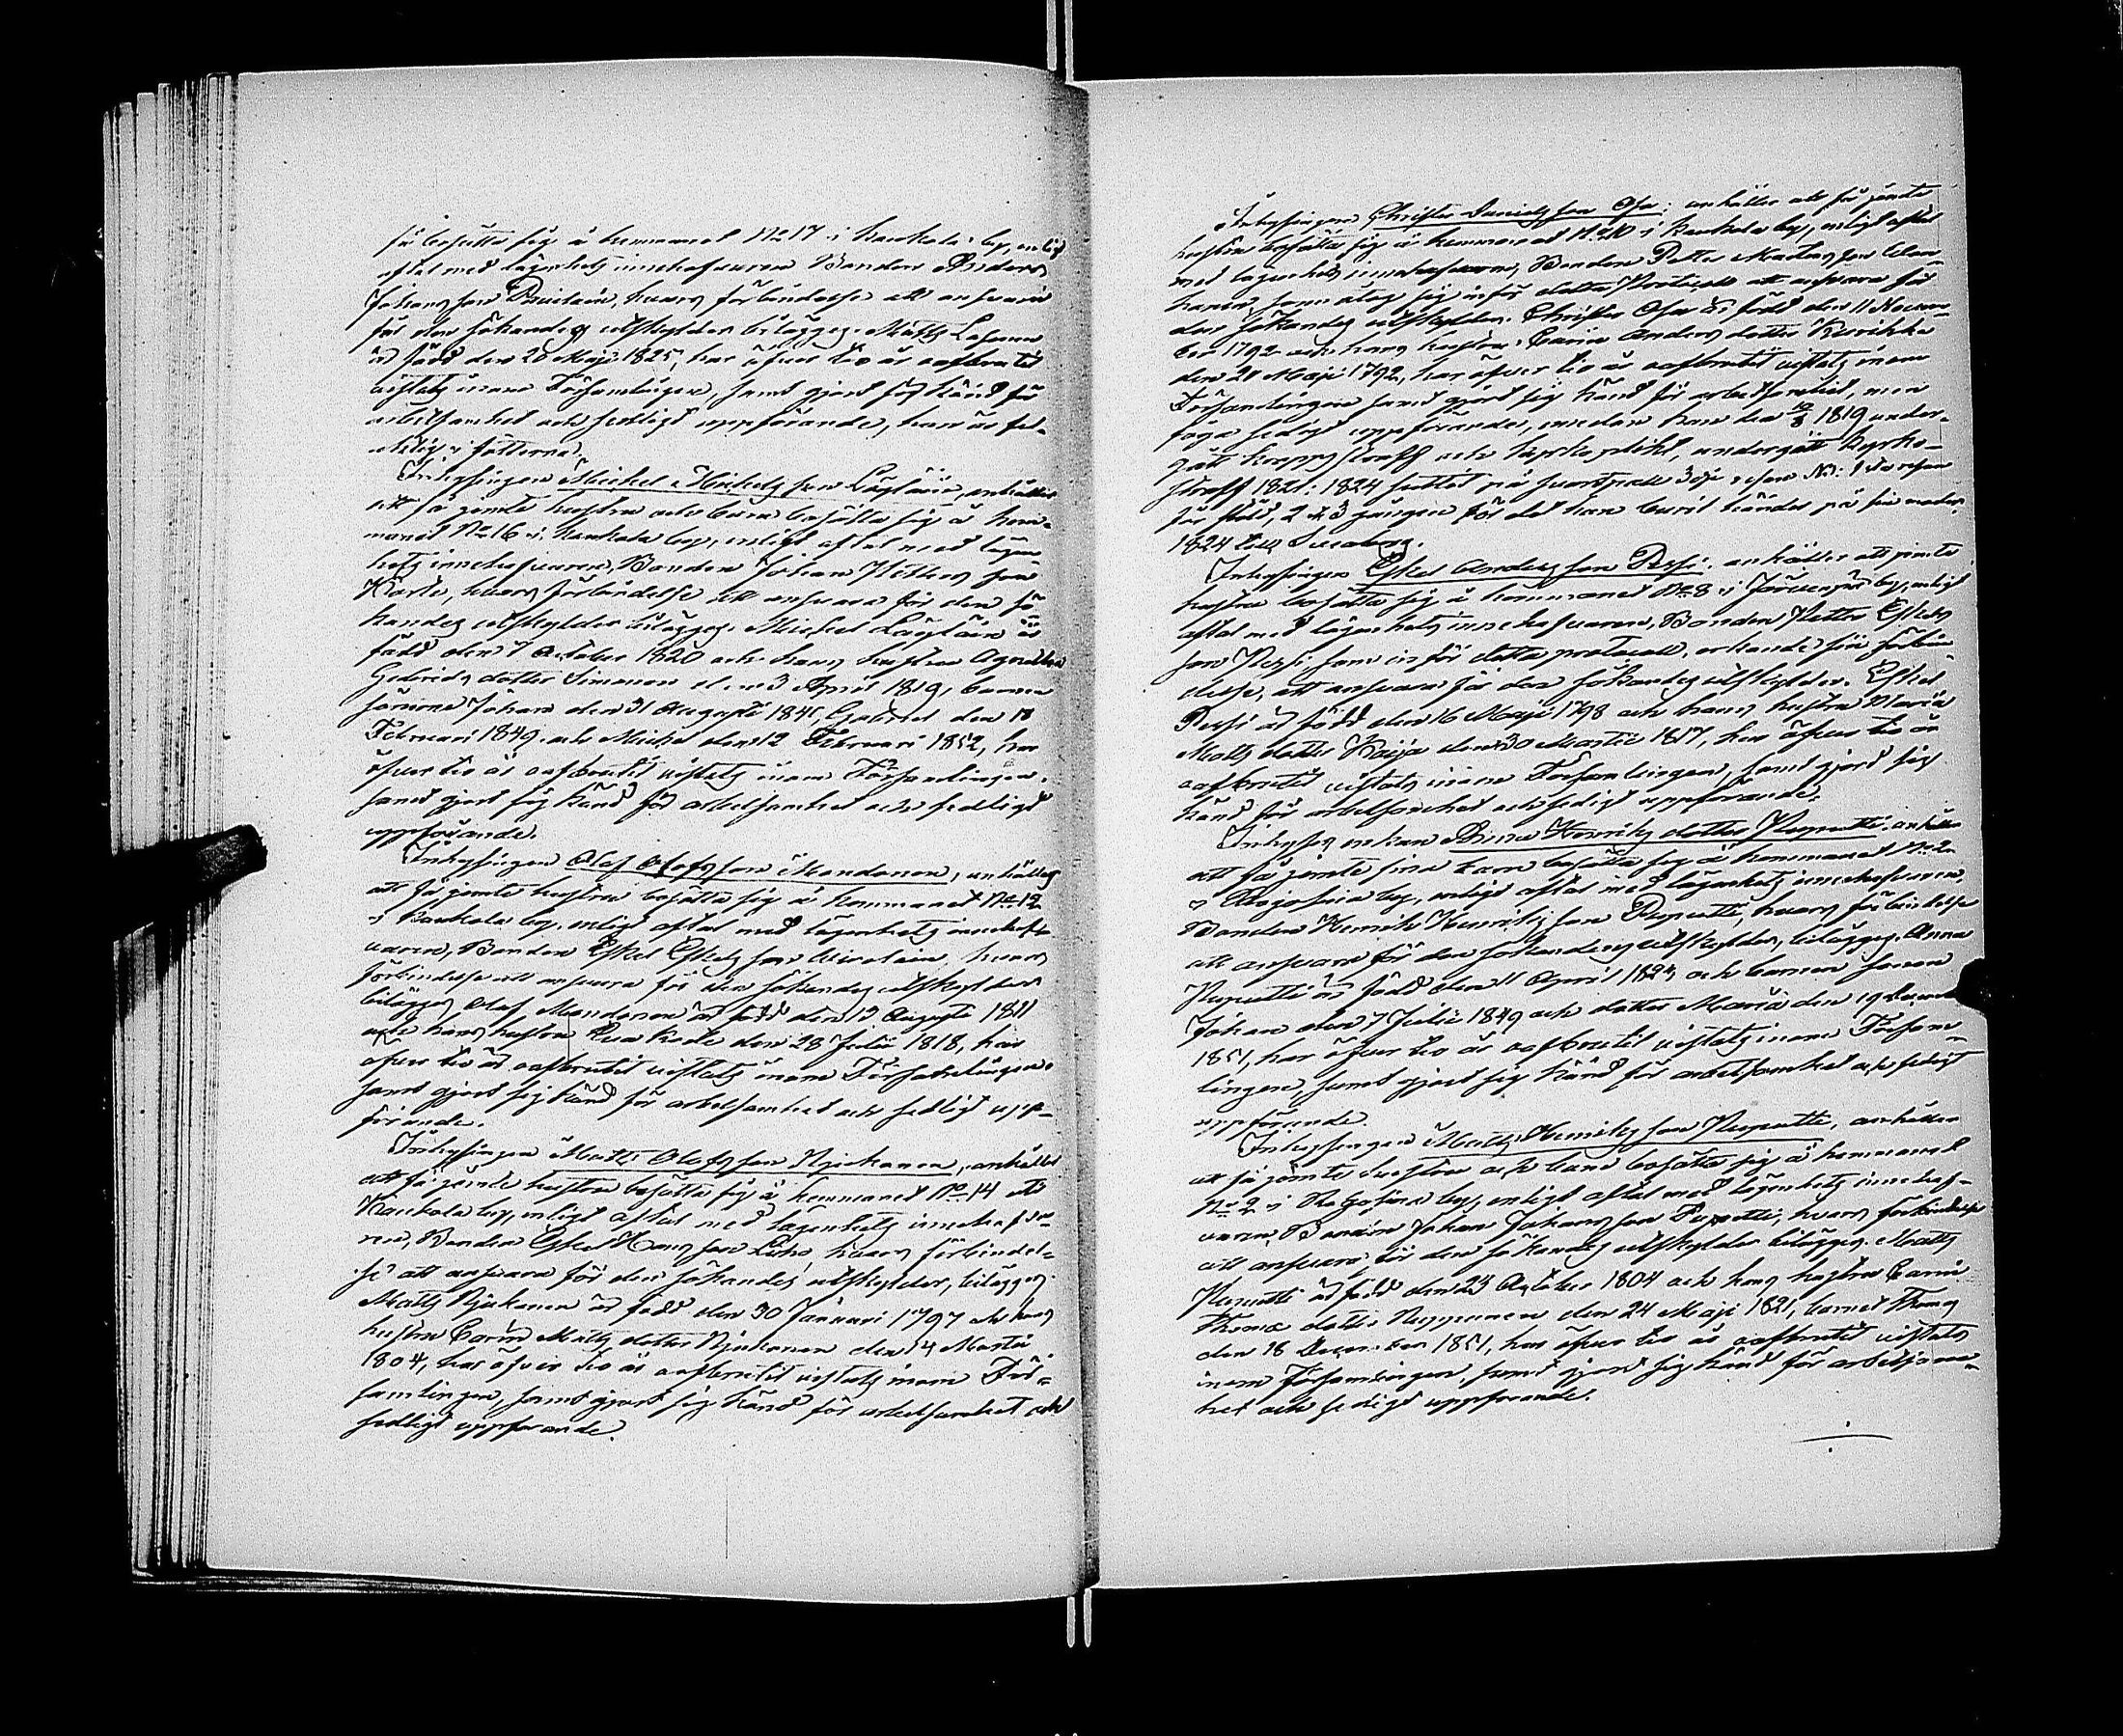 få bosätta sig å hemmanet No 17 i Kaukola by, enligt
aftal med lägenhets innehafvaren Bonden Anders
Johansson, hvars förbindelse att ansvara
för den sökandes utskylder bilägges. Matts
är född den 20 Maji 1825, har öfver tio år oafbrutit
vistats inom Församlingen, samt gjort sig känd för
arbetsamhet och sedligt uppförande, han är fel-
aktig i fötterna.
Inhysingen Michel Michelsson Lägläin, anhåller
att få jemte hustru och barn bosätta sig å hem-
manet No 16 i Kaukola by, enligt aftal med lägen-
hets innehafvaren, Bonden Johan Petters son
hvars förbindelse att ansvara för den sö-
kandes utskylder bilägges. Michel Lägläin är
född den 7 October 1820 och hans hustru Agneta
Gabriels dotter Simonen den 3 April 1819, barnen
sönerne Johan den 31 Augusti 1845, Gabriel den 18
Februari 1849 och Michel den 12 Februari 1852, har
öfver tio år oafbrutit vistats inom Församlingen,
samt gjort sig känd för arbetsamhet och sedligt
uppförande.
Inhysingen Olof Olofsson Mandonen, anhåller
att få jemte hustru bosätta sig å hemmanet No 12
i Kaukola by, enligt aftal med lägenhets innehaf-
varen, Bonden Eskel Eskelsson hvars
förbindelse att ansvara för den sökandes utskylder
bilägges. Olof Mandonen är född den 12 Augusti 1811
och hans hustru Eva den 28 Julii 1818, har
öfver tio år oafbrutit vistats inom Församlingen,
samt gjort sig känd för arbetsamhet och sedligt upp-
förande.
Inhysingen Matts Olofsson Njukanen, anhåller
att få jemte hustru bosätta sig å hemmanet No 14
Kaukola by, enligt aftal med lägenhets innehafva-
ren, Bonden Eskel Hansson hvars förbindel-
se att ansvara för den sökandes utskylder, bilägges.
Matts Njukanen är född den 30 Januari 1797 och hans
hustru Carin Matts dotter Njukanen den 14 Martii
1804, har öfver tio år oafbrutit vistats inom För-
samlingen, samt gjort sig känd för arbetsamhet och
sedligt uppförande.
Inhysingen Christer Danielsson anhåller att få jemte
hustru bosätta sig å hemmanet No 10 i Kaukola by, enligt aftal
med lägenhets innehafvaren, Bonden Petter Matsson
som åtog sig inför detta Protocoll att ansvara för
den sökandes utskylder. Christer är född den 11 Novem-
ber 1792 och hans hustru Carin Anders dotter
den 20 Maji 1792, har öfver tio år oafbrutit vistats inom
Församlingen samt gjort sig känd för arbetsamhet, men
föga sedigt uppförande, medan han 1819 under-
gått kroppsstraff och kyrkoplikt, undergått kyrko-
straff 1821: 1824
för stöld, 2 á 3 gången för det han burit händer på sin moder,
1824 till Sveaborg.
Inhysingen Eskel Andersson Pessi, anhåller att jemte
hustru bosätta sig å hemmanet No 8 i Järvenpää by, enligt
aftal med lägenhets innehafvaren, Bonden Petter Eskels
son Pessi, som inför detta protocoll, erkände sin förbin-
delse, att ansvara för den sökandes utskylder. Eskel
Pessi är född den 16 Maji 1798 och hans hustru Maria
Matts dotter den 30 Martii 1817, har öfver tio år
oafbrutit vistats inom Församlingen, samt gjort sig
känd för arbetsamhet och sedigt uppförande.
Inhyses enkan Anna Henriks dotter Puputti, anhåller
att få jemte sina barn bosätta sig å hemmanet No 2
i by, enligt aftal med lägenhets innehafvaren,
Bonden Henrik Henriksson Puputti, hvars förbindelse
att ansvara för den sökandes utskylder, bilägges. Anna
Puputti är född den 11 April 1824, och barnen sonen
Johan den 7 Julii 1849 och dotter Maria den 19
1851, har öfver tio år oafbrutit vistats inom Försam-
lingen, samt gjort sig känd för arbetsamhet och sedigt
uppförande.
Inhysingen Matts Henriksson Puputti, anhåller
att få jemte hustru och barn bosätta sig å hemmanet
No 2 i by, enligt aftal med lägenhets innehaf-
varen, Bonden Johan Johansson Puputti, hvars förbindelse
att ansvara för den sökandes utskylder bilägges. Matts
Puputti är född den 23 October 1804 och hans hustru Carin
Thomæ dotter den 24 Maji 1821, barnet Thomas
den 18 December 1851, har öfver tio år oafbrutit vistats
inom Församlingen, samt gjort sig känd för arbetsam-
het och sedigt uppförande.